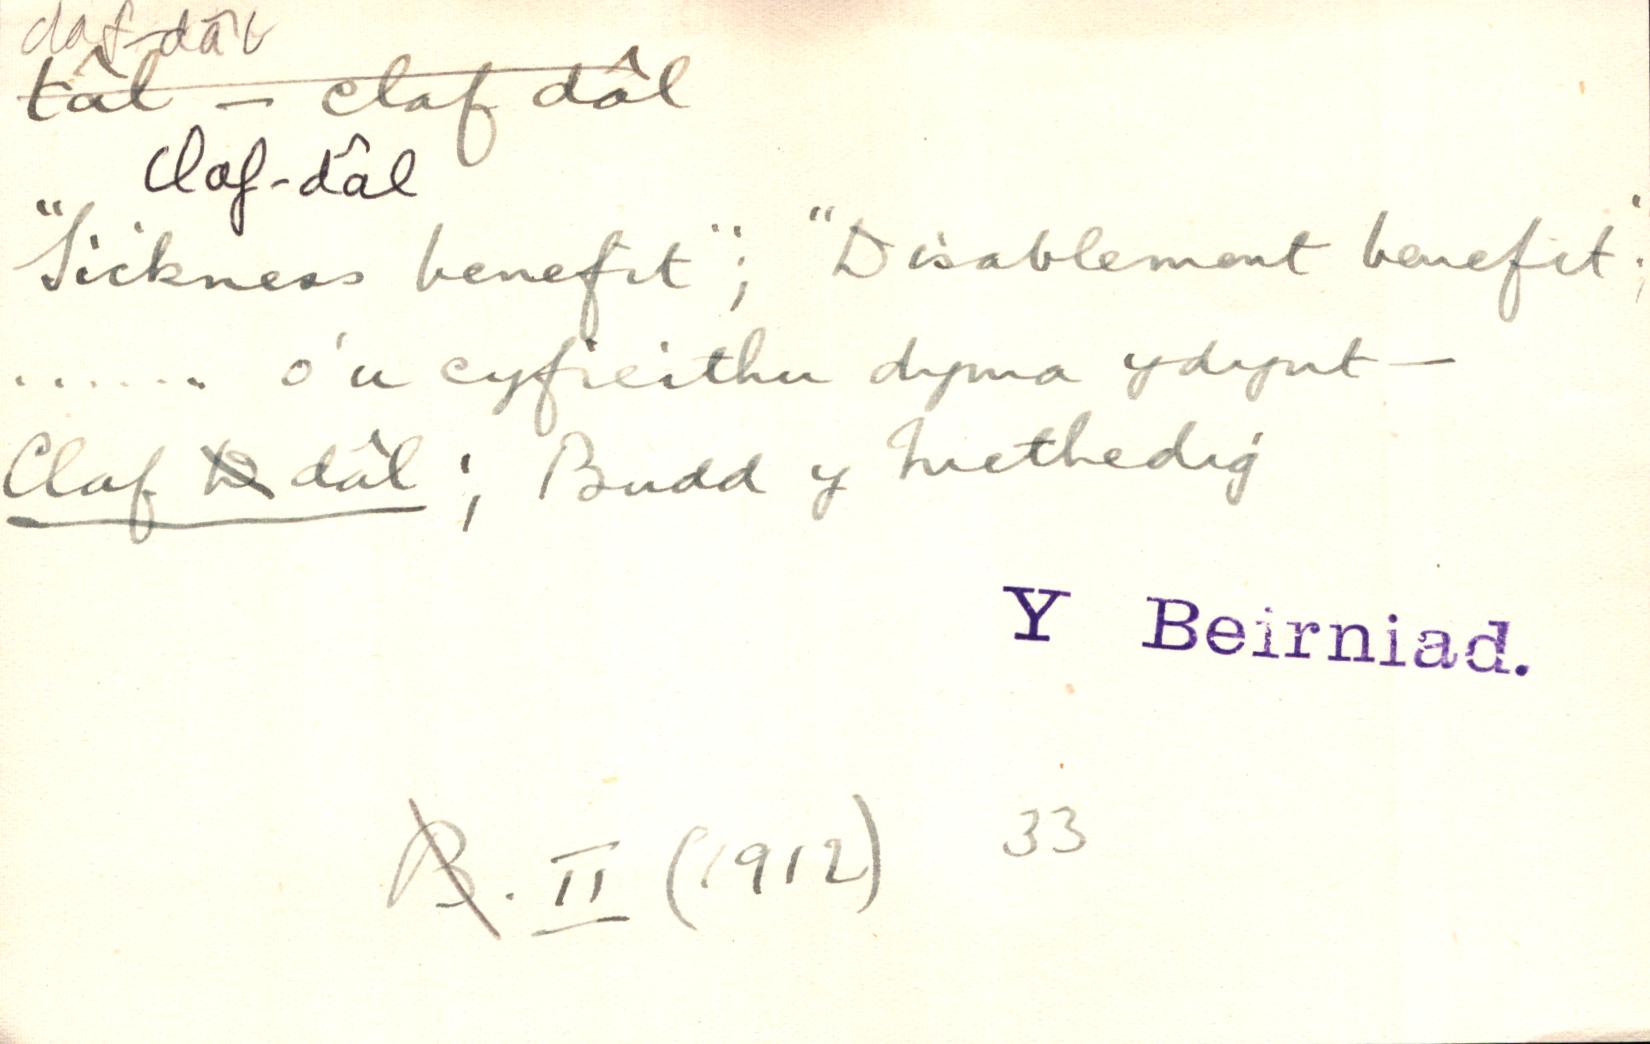 claf-dâl
tâl – claf dâl
claf-dâl
"Sickness benefit"; "Disablement benefit";
....... o'u cyfieithu dyma ydynt —
Claf dâl; Budd y Methedig
Y Beirniad.
B. II (1912) 33